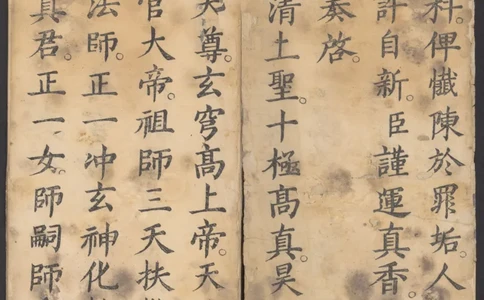 科。俾懺陳於罪垢。人
許自新。臣謹運真香。
奏啓。
清上聖。十極髙真。昊
天尊。玄穹髙上帝。天
官大帝。祖師三天扶
法師。正一冲玄神化
真君。正一女師嗣師